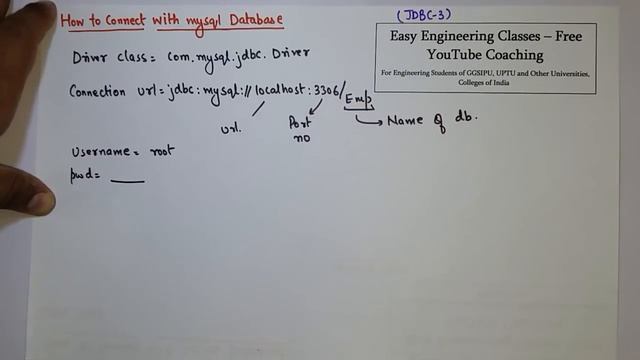 How to Connect with mysql Database
(JDBC-3)
Easy Engineering Classes – Free
YouTube Coaching
For Engineering Students of GGSIPU, UPTU and Other Universities,
Colleges of India
Driver class = com.mysql.jdbc.Driver
Connection url = jdbc:mysql://localhost:3306/Emp
url.
Port
no
Name of db.
Username = root
pwd =